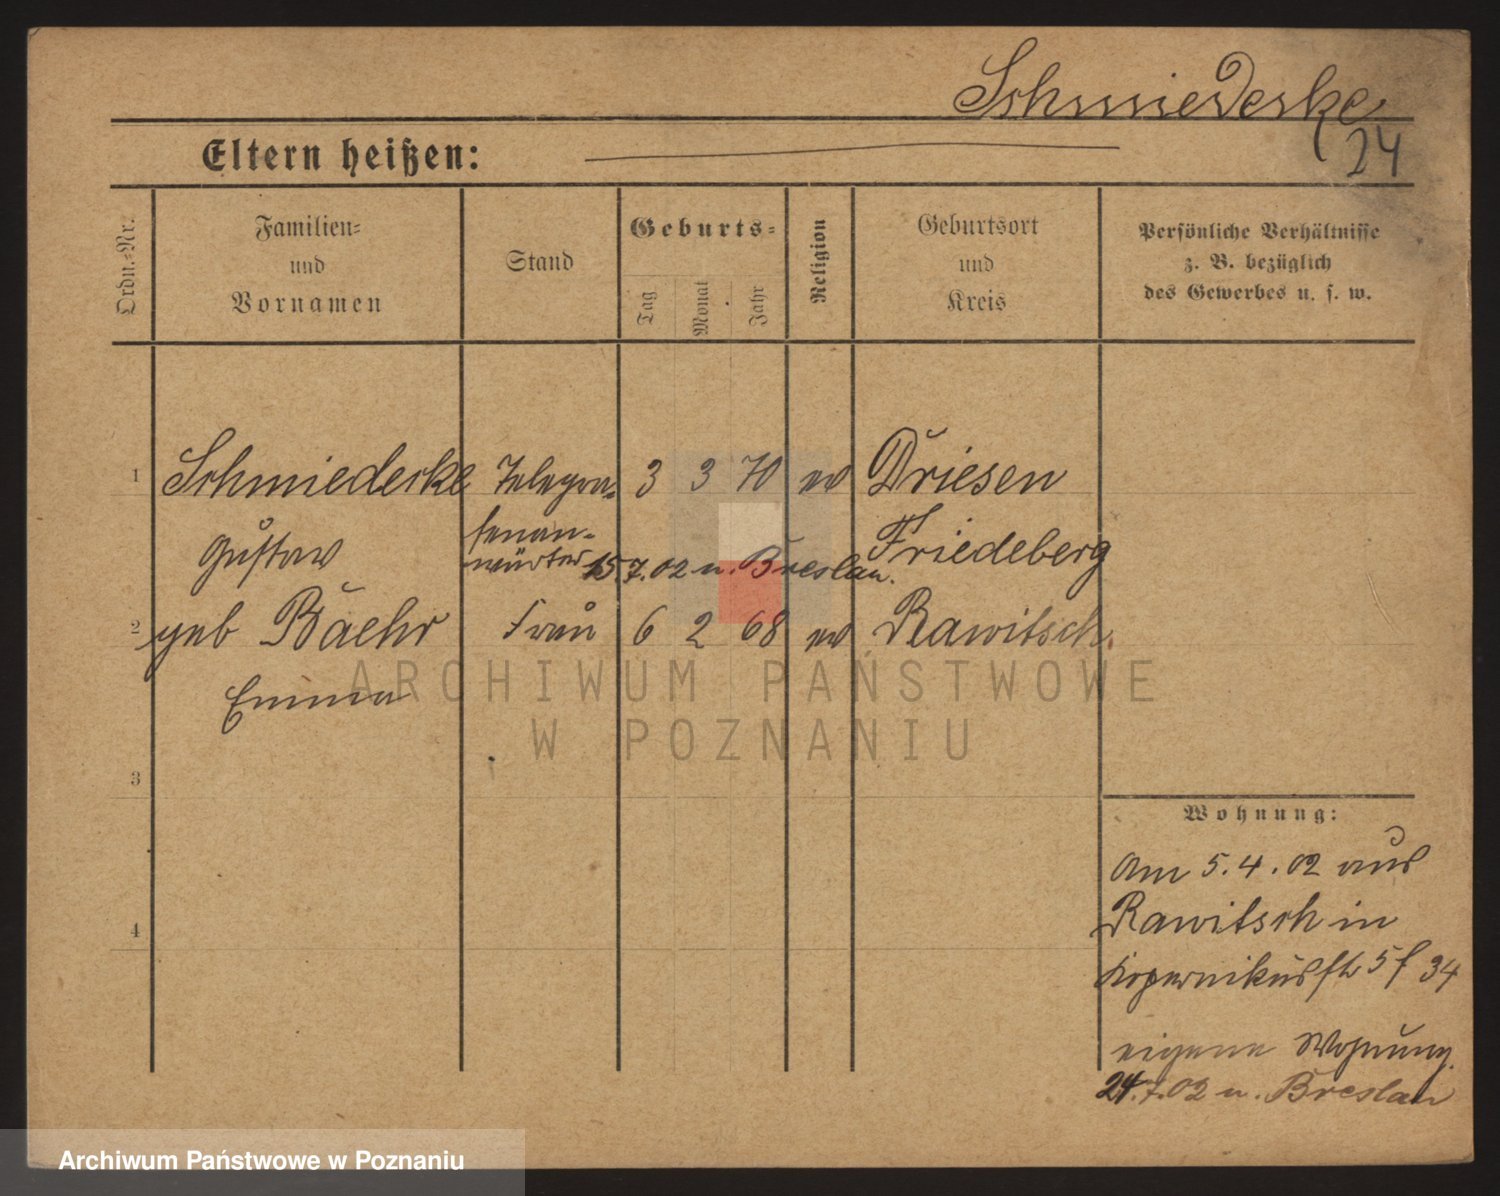 Schmiedeske
24
Eltern heißen:
Ordn.-Nr.
Familien-
und
Vornamen
Stand
Geburts-
Tag
Monat
Jahr
Religion
Geburtsort
und
Kreis
Persönliche Verhältnisse
z. B. bezüglich
des Gewerbes u. s. w.
1 Schmiedeske Telegra- 3 3 70 ev Driesen
Gustav
fenan-
wärter 15.7.02 n. Breslau.
Friedeberg
2 geb Baehr Frau 6 2 68 ev Rawitsch.
Emma
ARCHIWUM PAŃSTWOWE
W POZNANIU
3
Wohnung:
Am 5.4.02 aus
Rawitsch in
4
Kopernikusstr 5 f 34
eigene Wohnung.
24.7.02 n. Breslau
Archiwum Państwowe w Poznaniu